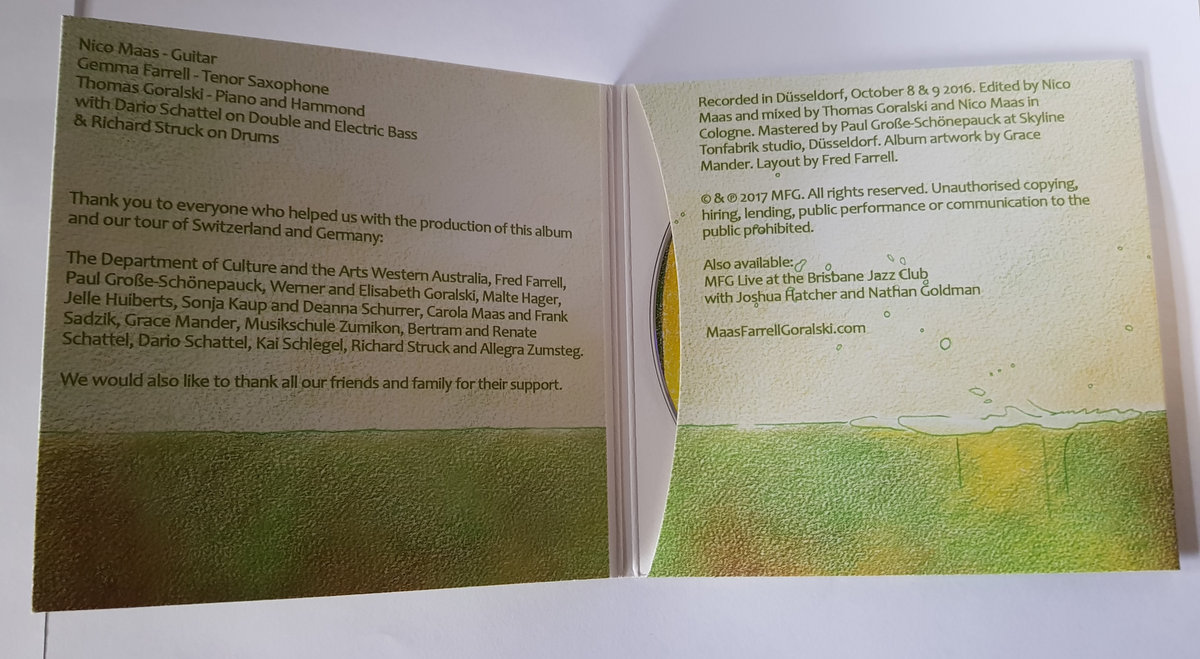 Nico Maas - Guitar
Gemma Farrell - Tenor Saxophone
Thomas Goralski - Piano and Hammond
with Dario Schattel on Double and Electric Bass
& Richard Struck on Drums
Thank you to everyone who helped us with the production of this album
and our tour of Switzerland and Germany:
The Department of Culture and the Arts Western Australia, Fred Farrell,
Paul Große-Schönepauck, Werner and Elisabeth Goralski, Malte Hager,
Jelle Huiberts, Sonja Kaup and Deanna Schurrer, Carola Maas and Frank
Sadzik, Grace Mander, Musikschule Zumikon, Bertram and Renate
Schattel, Dario Schattel, Kai Schlegel, Richard Struck and Allegra Zumsteg.
We would also like to thank all our friends and family for their support.
Recorded in Düsseldorf, October 8 & 9 2016. Edited by Nico
Maas and mixed by Thomas Goralski and Nico Maas in
Cologne. Mastered by Paul Große-Schönepauck at Skyline
Tonfabrik studio, Düsseldorf. Album artwork by Grace
Mander. Layout by Fred Farrell.
© & ℗ 2017 MFG. All rights reserved. Unauthorised copying,
hiring, lending, public performance or communication to the
public prohibited.
Also available:
MFG Live at the Brisbane Jazz Club
with Joshua Hatcher and Nathan Goldman
MaasFarrellGoralski.com